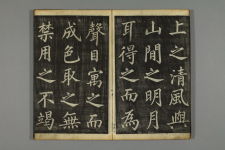 上之清風與
山間之明月
耳得之而為
聲目寓之而
成色取之無
禁用之不竭